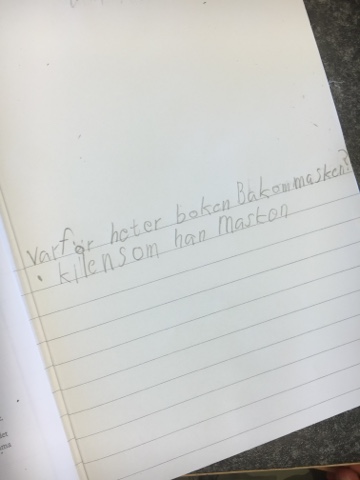 varför heter boken Bakom masken?
• kilen som han Masken